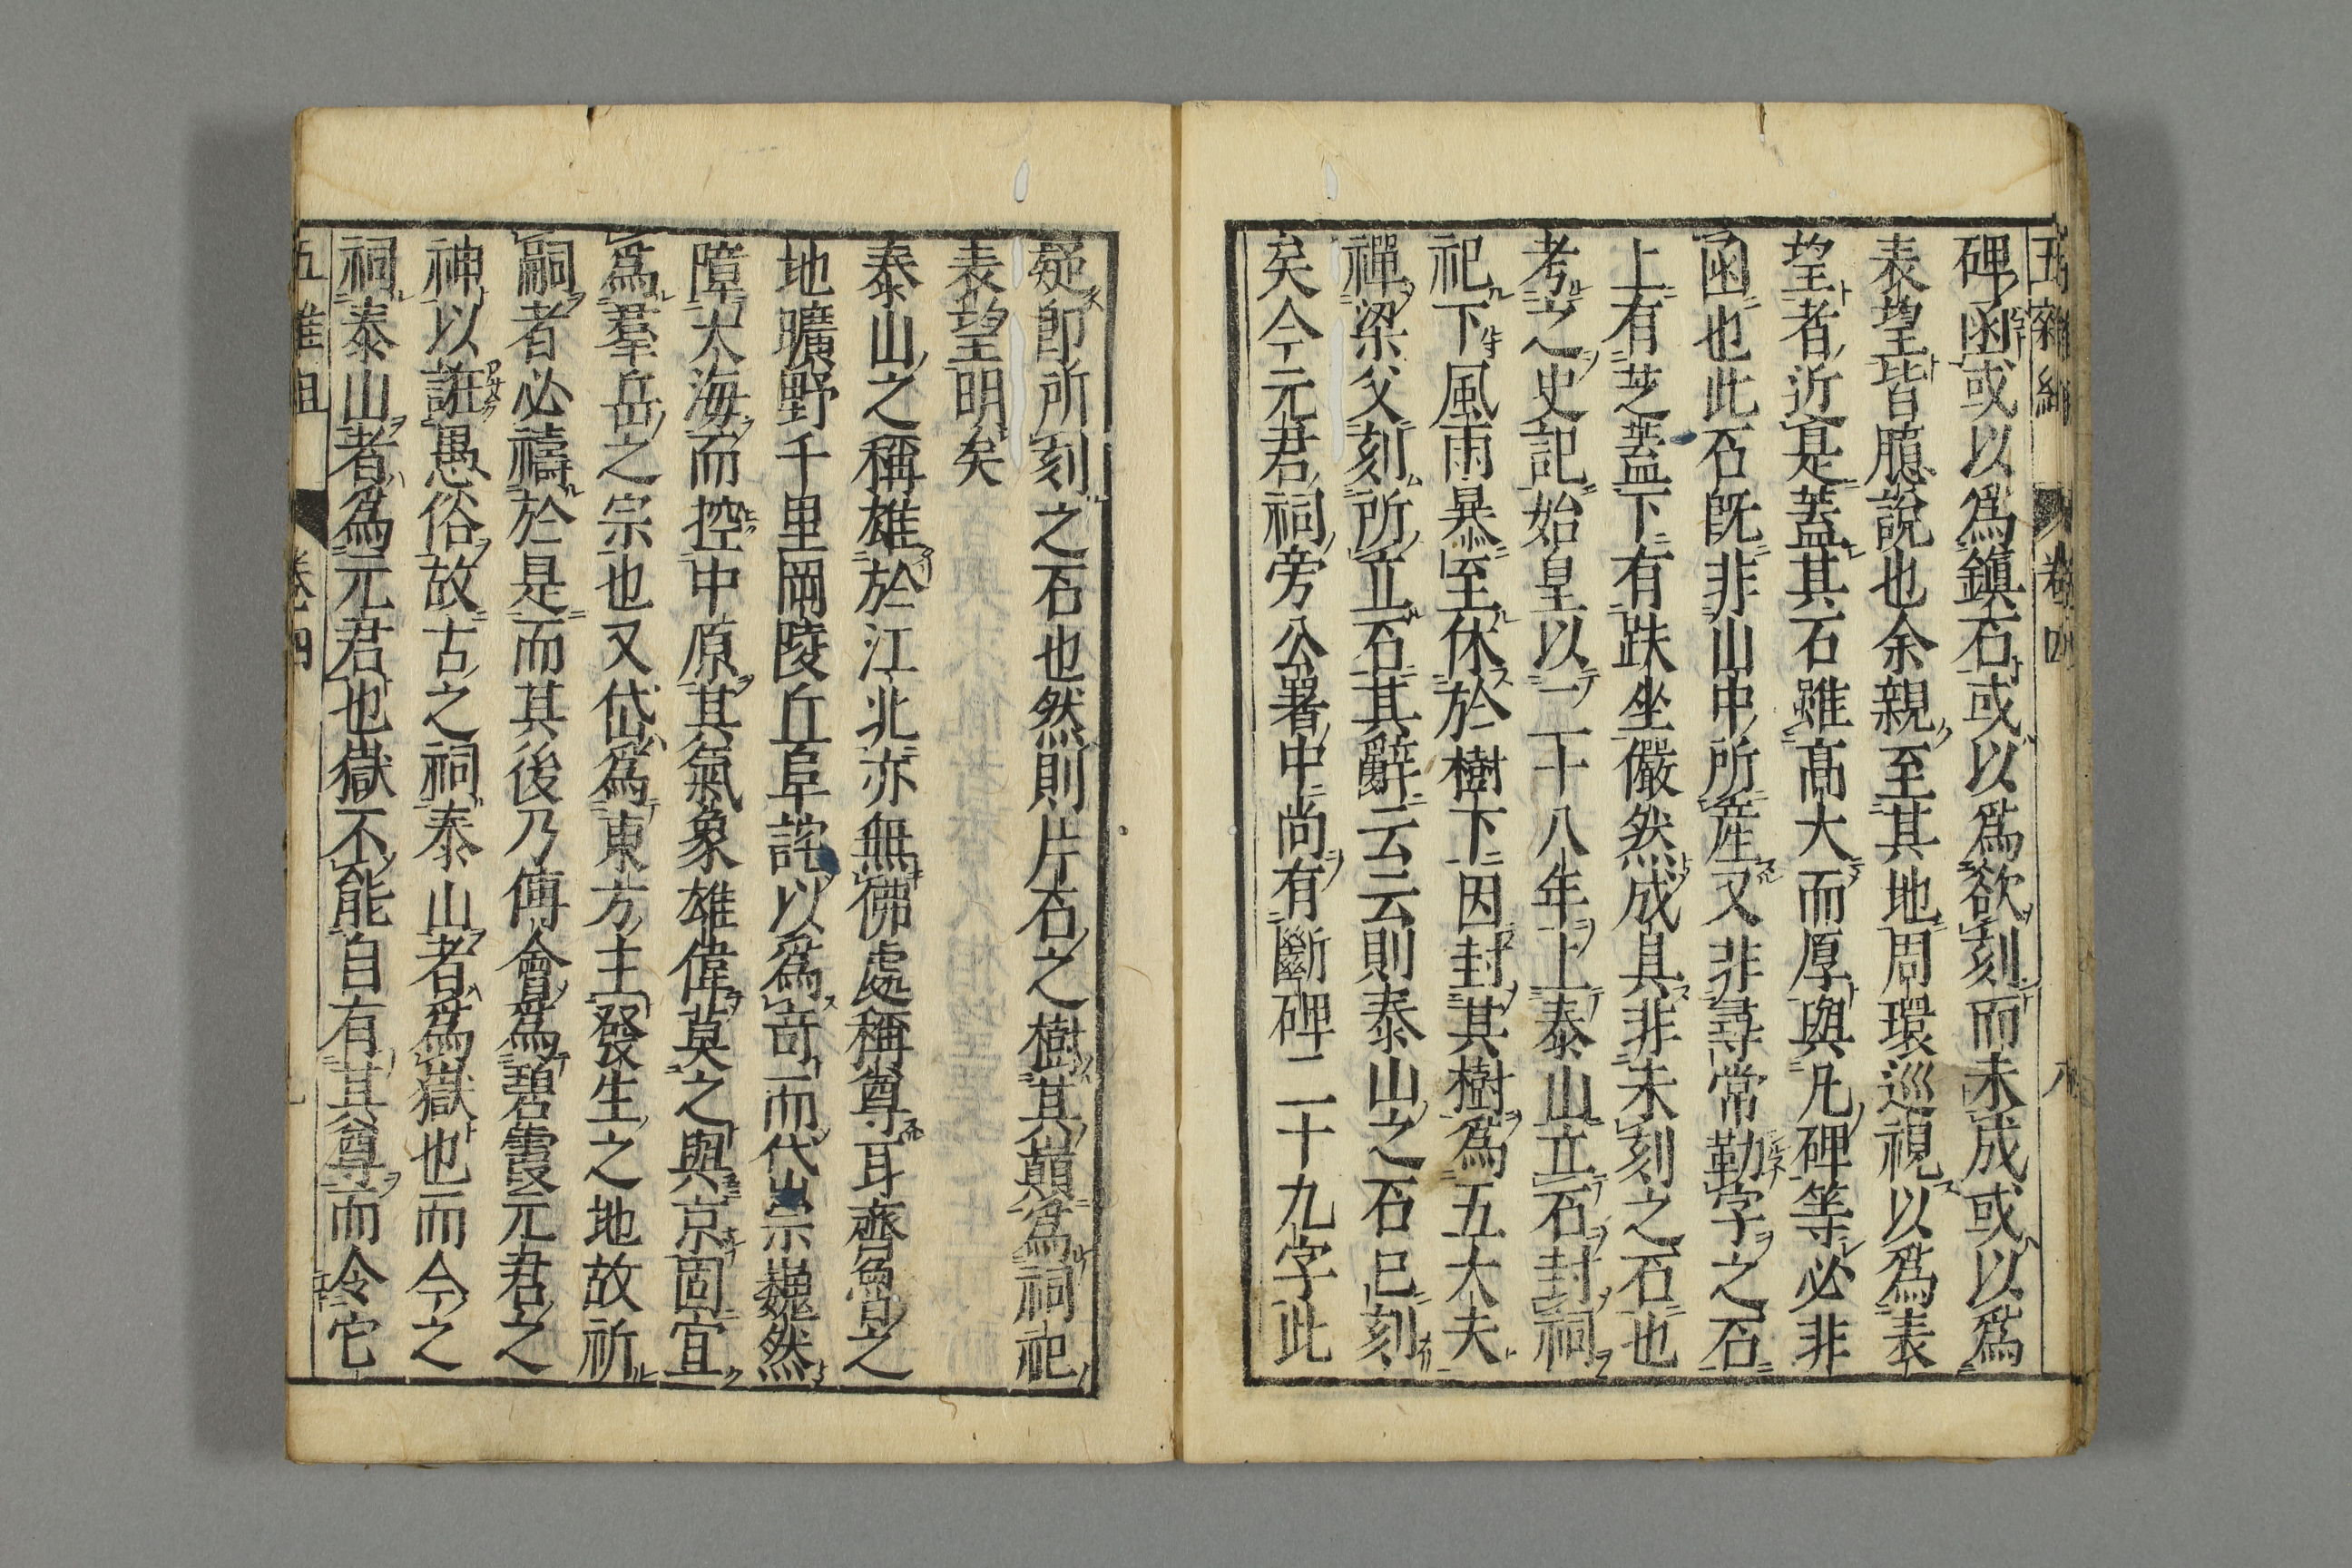 五雜組 卷四 八
碑函或以爲鎮石或以爲欲刻而未成或以爲
表望皆臆說也余親至其地周環巡視以爲表
望者近是蓋其石雖高大而厚與凡碑等必非
函也此石既非山中所産又非尋常勒字之石
上有芝蓋下有趺坐儼然成具非未刻之石也
考之史記始皇以二十八年上泰山立石封祠
祀下風雨暴至休於樹下因封其樹爲五大夫
禪梁父刻所立石其辭云云則泰山之石已刻
矣今元君祠旁公署中尚有斷碑二十九字此
疑卽所刻之石也然則片石之樹其巓爲祠祀
表望明矣
泰山之稱雄於江北亦無佛處稱尊耳齊魯之
地曠野千里岡陵丘阜詫以爲奇而岱宗巍然
障大海而控中原其氣象雄偉莫之與京固宜
爲羣岳之宗也又岱爲東方主發生之地故祈
嗣者必禱於是而其後乃傅會爲碧霞元君之
神以誑愚俗故古之祠泰山者爲嶽也而今之
祠泰山者爲元君也嶽不能自有其尊而令它
五雜組 卷四